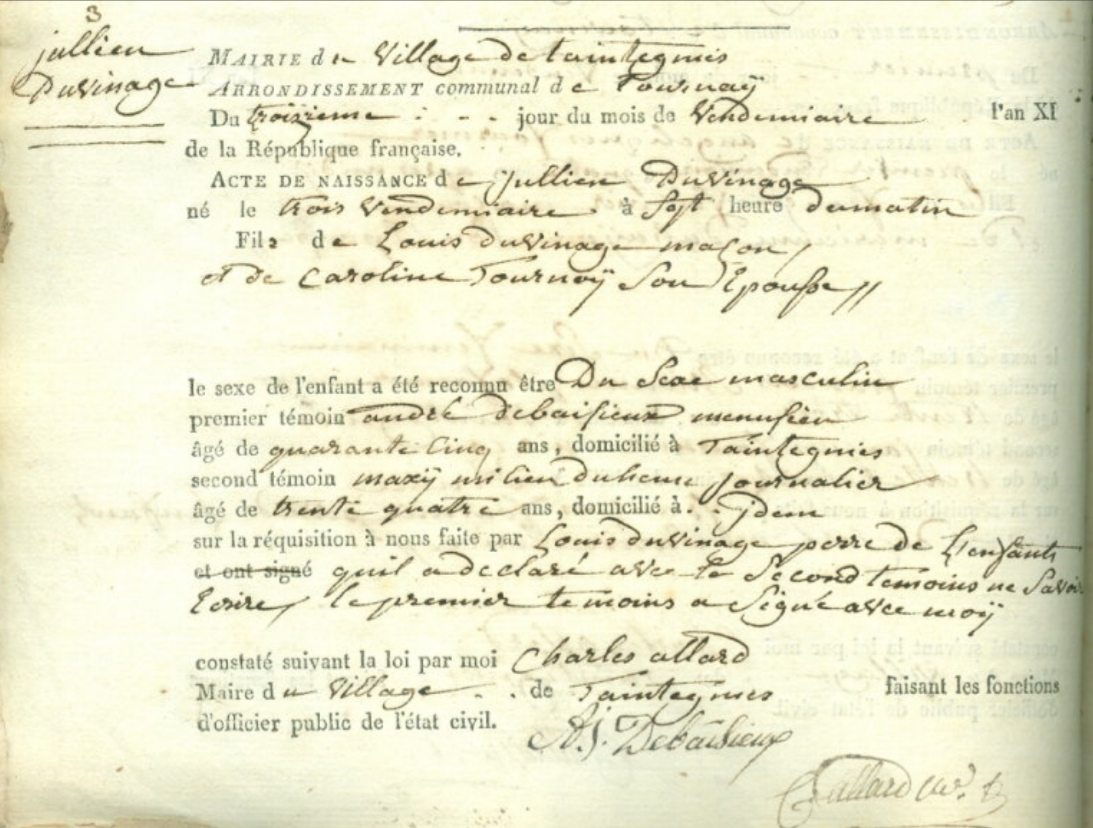 3
jullien
Duvinage
MAIRIE du Village de taintegnies
ARRONDISSEMENT communal de Tournaÿ
Du troizieme jour du mois de Vendemiaire l'an XI
de la République française.
ACTE DE NAISSANCE de jullien Duvinage
né le trois Vendemiaire à Sept heure dumatin
Fils de Louis duvinage maçon
et de Caroline Tournoÿ Son Epousse
le sexe de l'enfant a été reconnu être Du Sexe masculin
premier témoin andré debaisieux menusien
âgé de quarante Cinq ans, domicilié à Taintegnies
second témoin maxÿmilien duhem journalier
âgé de trente quatre ans, domicilié à . . jdem
sur la réquisition à nous faite par Louis duvinage perre de L'enfants
et ont signé quil a declaré avec le Second temoins ne Savoir
Ecrire, le premier temoins a Signé avec moÿ
constaté suivant la loi par moi Charles allard
Maire du Village . . de Taintegnies faisant les fonctions
d'officier public de l'état civil.
A.J. Debaisieux
C allard